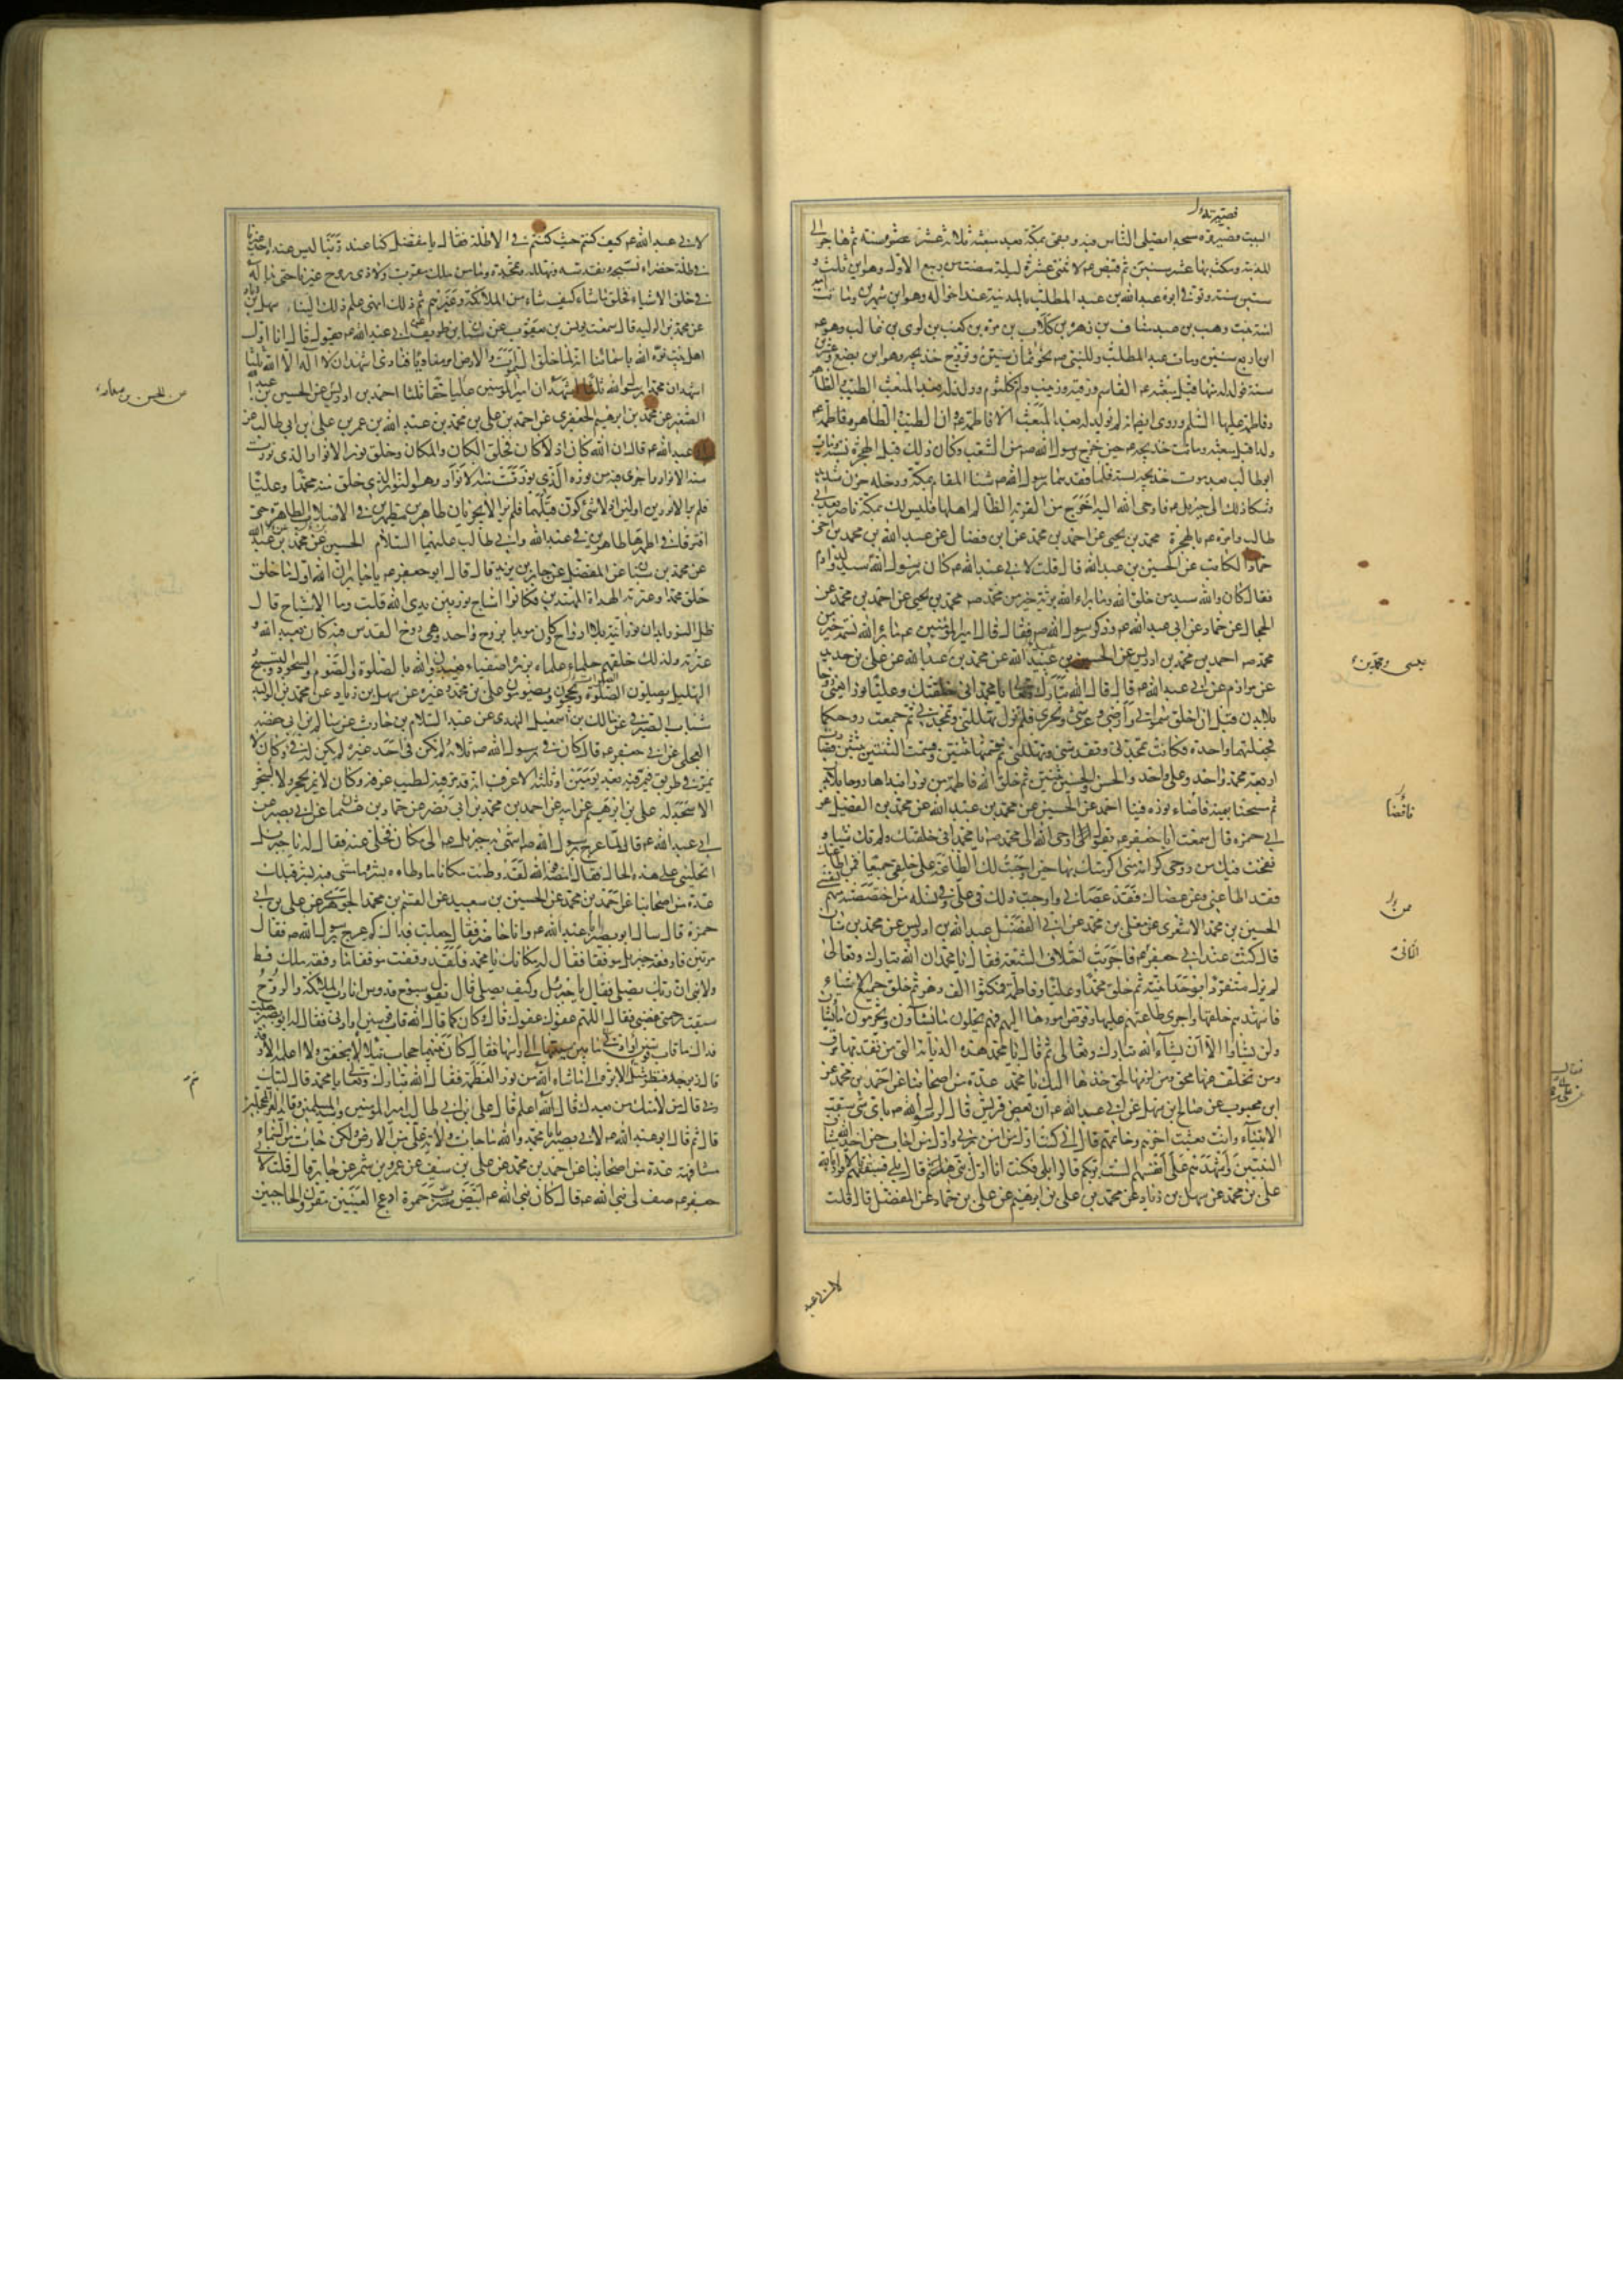 فصيرته
البيت فصيروه مسجدا يصلى الناس فيه وبقى بمكة بعد مبعثه ثلاثة عشر سنة ثم هاجر الى
المدينة ومكث بها عشر سنين ثم قبض عم لاثنتى عشرة ليلة مضت من ربيع الاول وهو ابن ثلث و
ستين سنة وتوفى ابوه عبد الله بن عبد المطلب بالمدينة عند اخواله وهو ابن شهرين وماتت امه
امنة بنت وهب بن عبد مناف بن زهرة بن كلاب بن مرة بن كعب بن لوى بن غالب وهو عم
ابن اربع سنين ومات عبد المطلب وللنبى صم نحو ثمان سنين وتزوج خديجه وهو ابن بضع وعشرين
سنة فولد له منها قبل مبعثه عم القاسم ورقية وزينب وام كلثوم وولد له بعد المبعث الطيب والطاهر
وفاطمة عليها السلم وروى ايضا انه لم يولد له بعد المبعث الا فاطمة عم وان الطيب والطاهر
ولدا قبل مبعثه وماتت خديجه عم حين خرج رسول الله صم من الشعب وكان ذلك قبل الهجرة بسنة ومات
ابو طالب بعد موت خديجه بسنة فلما فقدهما رسول الله صم شنا المقام بمكة ودخله حزن شديد
وشكا ذلك الى جبرئيل عم فاوحى الله اليه اخرج من القرية الظالم اهلها فليس لك بمكة ناصر بعد ابى
طالب وامره عم بالهجرة محمد بن يحيى عن احمد بن محمد عن ابن فضال عن عبد الله بن محمد بن اخى
حماد الكاتب عن الحسين بن عبد الله قال قلت لابى عبد الله عم كان رسول الله سيد ولد ادم
فقال كان والله سيد من خلق الله وما براء الله برية خير من محمد صم محمد بن يحيى عن احمد بن محمد عن
الحجال عن حماد عن ابى عبد الله عم وذكر رسول الله صم فقال قال امير المؤمنين عم ما براء الله نسمة خير من
محمد صم احمد بن محمد بن ادريس عن الحسين بن عبيد الله عن محمد بن عبد الله عن على بن حديد
عن مرازم عن ابى عبد الله عم قال قال الله تبارك وتعالى يا محمد انى خلقتك وعليا نورا يعنى روحا
بلا بدن قبل ان اخلق سمواتى وارضى وعرشى وبحرى فلم تزل تهللنى وتمجدنى ثم جمعت روحيكما
فجعلتهما واحدة فكانت تمجدنى وتقدسنى وتهللنى ثم قسمتها ثنتين وقسمت الثنتين ثنتين فصارت
اربعة محمد واحد وعلى واحد والحسن والحسين ثنتين ثم خلق الله فاطمة من نور ابتداها روحا بلا بدن
ثم مسحنا بيمينه فافضاء نوره فينا احمد عن الحسين عن محمد بن عبد الله عن محمد بن الفضيل عن
ابى حمزه قال سمعت ابا جعفر عم يقول اوحى الله الى محمد صم يا محمد انى خلقتك ولم تك شيئا و
نفخت فيك من روحى كرامة منى اكرمتك بها حين اوجبت لك الطاعة على خلقى جميعا فمن اطاعك
فقد اطاعنى ومن عصاك فقد عصانى واوجبت ذلك فى على وفى نسله من اختصصته منهم لنفسى
الحسين بن محمد الاشعرى عن معلى بن محمد عن ابى الفضل عبد الله بن ادريس عن محمد بن سنان
قال كنت عند ابى جعفر عم فاجريت اختلاف الشيعة فقال يا محمد ان الله تبارك وتعالى
لم يزل متفردا بوحدانيته ثم خلق محمدا وعليا وفاطمة فمكثوا الف دهر ثم خلق جميع الاشياء
فاشهدهم خلقها واجرى طاعتهم عليها وفوض امورها اليهم فهم يحلون ما يشاؤن ويحرمون ما يشاؤن
ولن يشاؤا الا ان يشاء الله تبارك وتعالى ثم قال يا محمد هذه الديانة التى من تقدمها مرق
ومن تخلف عنها محق ومن لزمها لحق خذها اليك يا محمد عدة من اصحابنا عن احمد بن محمد عن
ابن محبوب عن صالح بن سهل عن ابى عبد الله عم ان بعض قريش قال لرسول الله صم باى شى سبقت
الانبياء وانت بعثت اخرهم وخاتمهم قال انى كنت اول من امن بربى واول من اجاب حين اخذ الله ميثاق
النبيين واشهدهم على انفسهم الست بربكم قالوا بلى فكنت انا اول نبى قال بلى فسبقتهم بالاقرار بالله
على بن محمد عن سهل بن زياد عن محمد بن على بن ابرهيم عن على بن حماد عن المفضل قال قلت
لابى عبد
يحيى ومحمد بن
فافضا
من
الكافى
لابى عبد الله عم كيف كنتم حيث كنتم فى الاظلة فقال يا مفضل كنا عند ربنا ليس عنده احد غيرنا
فى ظلة خضراء نسبحه ونقدسه ونهلله ونمجده وما من ملك مقرب ولا ذى روح غيرنا حتى بدا له
فى خلق الاشياء فخلق ما شاء كيف شاء من الملائكة وغيرهم ثم انهى علم ذلك الينا سهل بن زياد
عن محمد بن الوليد قال سمعت يونس بن يعقوب عن سنان بن طريف عن ابى عبد الله عم يقول قال انا اول
اهل بيت نوه الله باسمائنا انه لما خلق السموات والارض امر مناديا فنادى اشهد ان لا اله الا الله ثلثا
اشهد ان محمدا رسول الله ثلثا اشهد ان امير المؤمنين عليا حقا ثلثا احمد بن ادريس عن الحسين بن عبد الله
الصغير عن محمد بن ابرهيم الجعفرى عن احمد بن على بن محمد بن عبد الله بن عمر بن على بن ابى طالب عن
ابى عبد الله عم قال ان الله كان اذ لا كان فخلق الكان والمكان وخلق نور الانوار الذى نورت
منه الانوار واجرى فيه من نوره الذى نورت منه الانوار وهو النور الذى خلق منه محمدا وعليا
فلم يزالا نورين اولين اذ لا شئ كون قبلهما فلم يزالا يجريان طاهرين مطهرين فى الاصلاب الطاهرة حتى
افترقا فى اطهر طاهرين فى عبد الله وابى طالب عليهما السلام الحسين عن محمد بن عبد الله
عن محمد بن سنان عن المفضل عن جابر بن يزيد قال قال ابو جعفر عم يا جابر ان الله اول ما خلق
خلق محمدا وعترته الهداة المهتدين فكانوا اشباح نور بين يدى الله قلت وما الاشباح قال
ظل النور ابدان نورانية بلا ارواح وكان مويدا بروح واحدة وهى روح القدس فبه كان يعبد الله و
عترته ولذلك خلقهم حلماء علماء بررة اصفياء يعبدون الله بالصلوة والصوم والسجود والتسبيح و
التهليل ويصلون الصلوة ويحجون ويصومون على بن محمد وغيره عن سهل بن زياد عن محمد بن الوليد
شباب الصيرفى عن مالك بن اسمعيل النهدى عن عبد السلام بن حارث عن سالم بن ابى حفصة
العجلى عن ابى جعفر عم قال كان فى رسول الله صم ثلاثة لم تكن فى احد غيره لم يكن له فئ وكان لا
يمر فى طريق فيمر فيه بعد يومين او ثلثة الا عرف انه قد مر فيه لطيب عرفه وكان لا يمر بحجر ولا بشجر
الا سجد له على بن ابرهيم عن ابيه عن احمد بن محمد بن ابى نصر عن حماد بن عثمان عن ابى بصير عن
ابى عبد الله عم قال لما عرج برسول الله صم انتهى به جبرئيل عم الى مكان فخلى عنه فقال له يا جبرئيل
اتخلينى على هذه الحال فقال امضه فوالله لقد وطئت مكانا ما وطاه بشر وما مشى فيه بشر قبلك
عدة من اصحابنا عن احمد بن محمد عن الحسين بن سعيد عن القسم بن محمد الجوهرى عن على بن ابى
حمزة قال سال ابو بصير ابا عبد الله عم وانا حاضر فقال جعلت فداك كم عرج برسول الله صم فقال
مرتين فاوقفه جبرئيل موقفا فقال له مكانك يا محمد فلقد وقفت موقفا ما وقفه ملك قط
ولا نبى ان ربك يصلى فقال يا جبرئيل وكيف يصلى قال يقول سبوح قدوس انا رب الملائكة والروح
سبقت رحمتى غضبى فقال اللهم عفوك عفوك قال وكان كما قال الله قاب قوسين او ادنى فقال له ابو بصير جعلت
فداك ما قاب قوسين او ادنى قال ما بين سيتها الى راسها فقال كان بينهما حجاب يتلالا يخفق ولا اعلمه الا وقد
قال زبرجد فنظر فى مثل سم الابرة الى ما شاء الله من نور العظمة فقال الله تبارك وتعالى يا محمد قال لبيك
ربى قال من لامتك من بعدك قال الله اعلم قال على بن ابى طالب امير المؤمنين وسيد المسلمين وقائد الغر المحجلين
قال ثم قال ابو عبد الله عم لابى بصير يا ابا محمد والله ما جاءت ولاية على من الارض ولكن جاءت من السماء
مشافهة عدة من اصحابنا عن احمد بن محمد عن على بن سيف عن عمرو بن شمر عن جابر قال قلت لابى
جعفر عم صف لى نبى الله عم قال كان نبى الله عم ابيض مشرب حمرة ادعج العينين مقرون الحاجبين